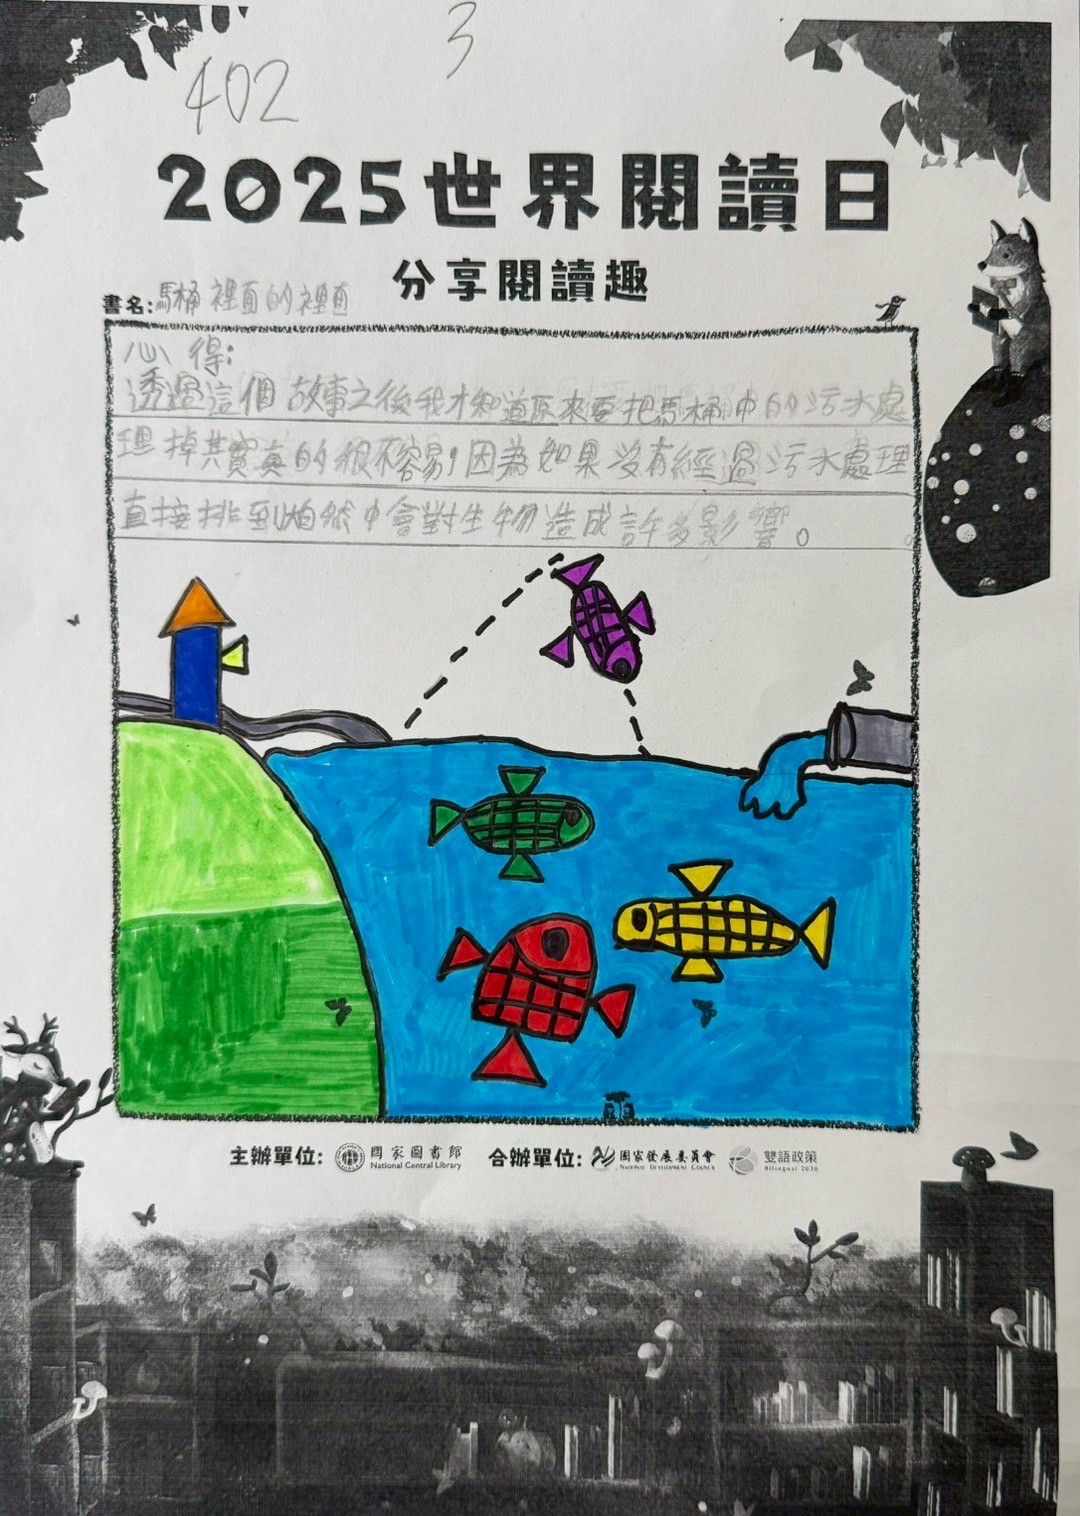 3
402
2025世界閱讀日
分享閱讀趣
書名:馬桶裡面的裡面
心得:
透過這個故事之後我才知道原來要把馬桶中的污水處
理掉其實真的很不容易,因為如果沒有經過污水處理
直接排到自然中會對生物造成許多影響。
主辦單位: 國家圖書館 National Central Library 合辦單位: 國家發展委員會 National Development Council 雙語政策 Bilingual 2030